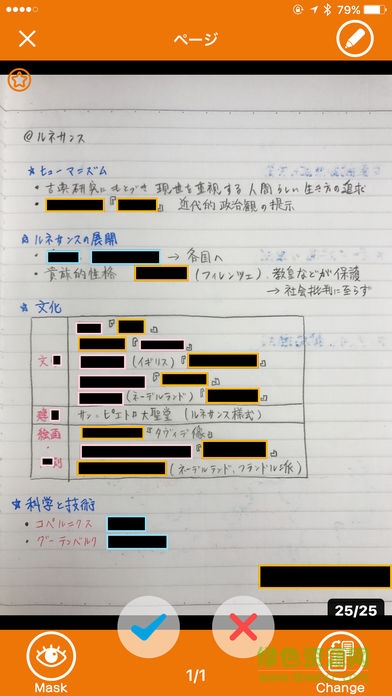 79%
ページ
@ルネサンス
☆ヒューマニズム
・古典研究にもとづき 現世を重視する 人間らしい生き方の追求
・『』 近代的政治観の提示
☆ルネサンスの展開
・、 → 各国へ
・貴族的性格 (フィレンツェ)、教皇などが保護
→ 社会批判に至らず
☆ 文化
『』
『』
文 (イギリス)『』
『』
(ネーデルランド)『』
建 サン=ピエトロ大聖堂 (ルネサンス様式)
絵画 『ダヴィデ像』
・『』
刻 (ネーデルランド、フランドル派)
☆科学と技術
・コペルニクス
・グーテンベルク
25/25
Mask
1/1
Change
绿色资源网